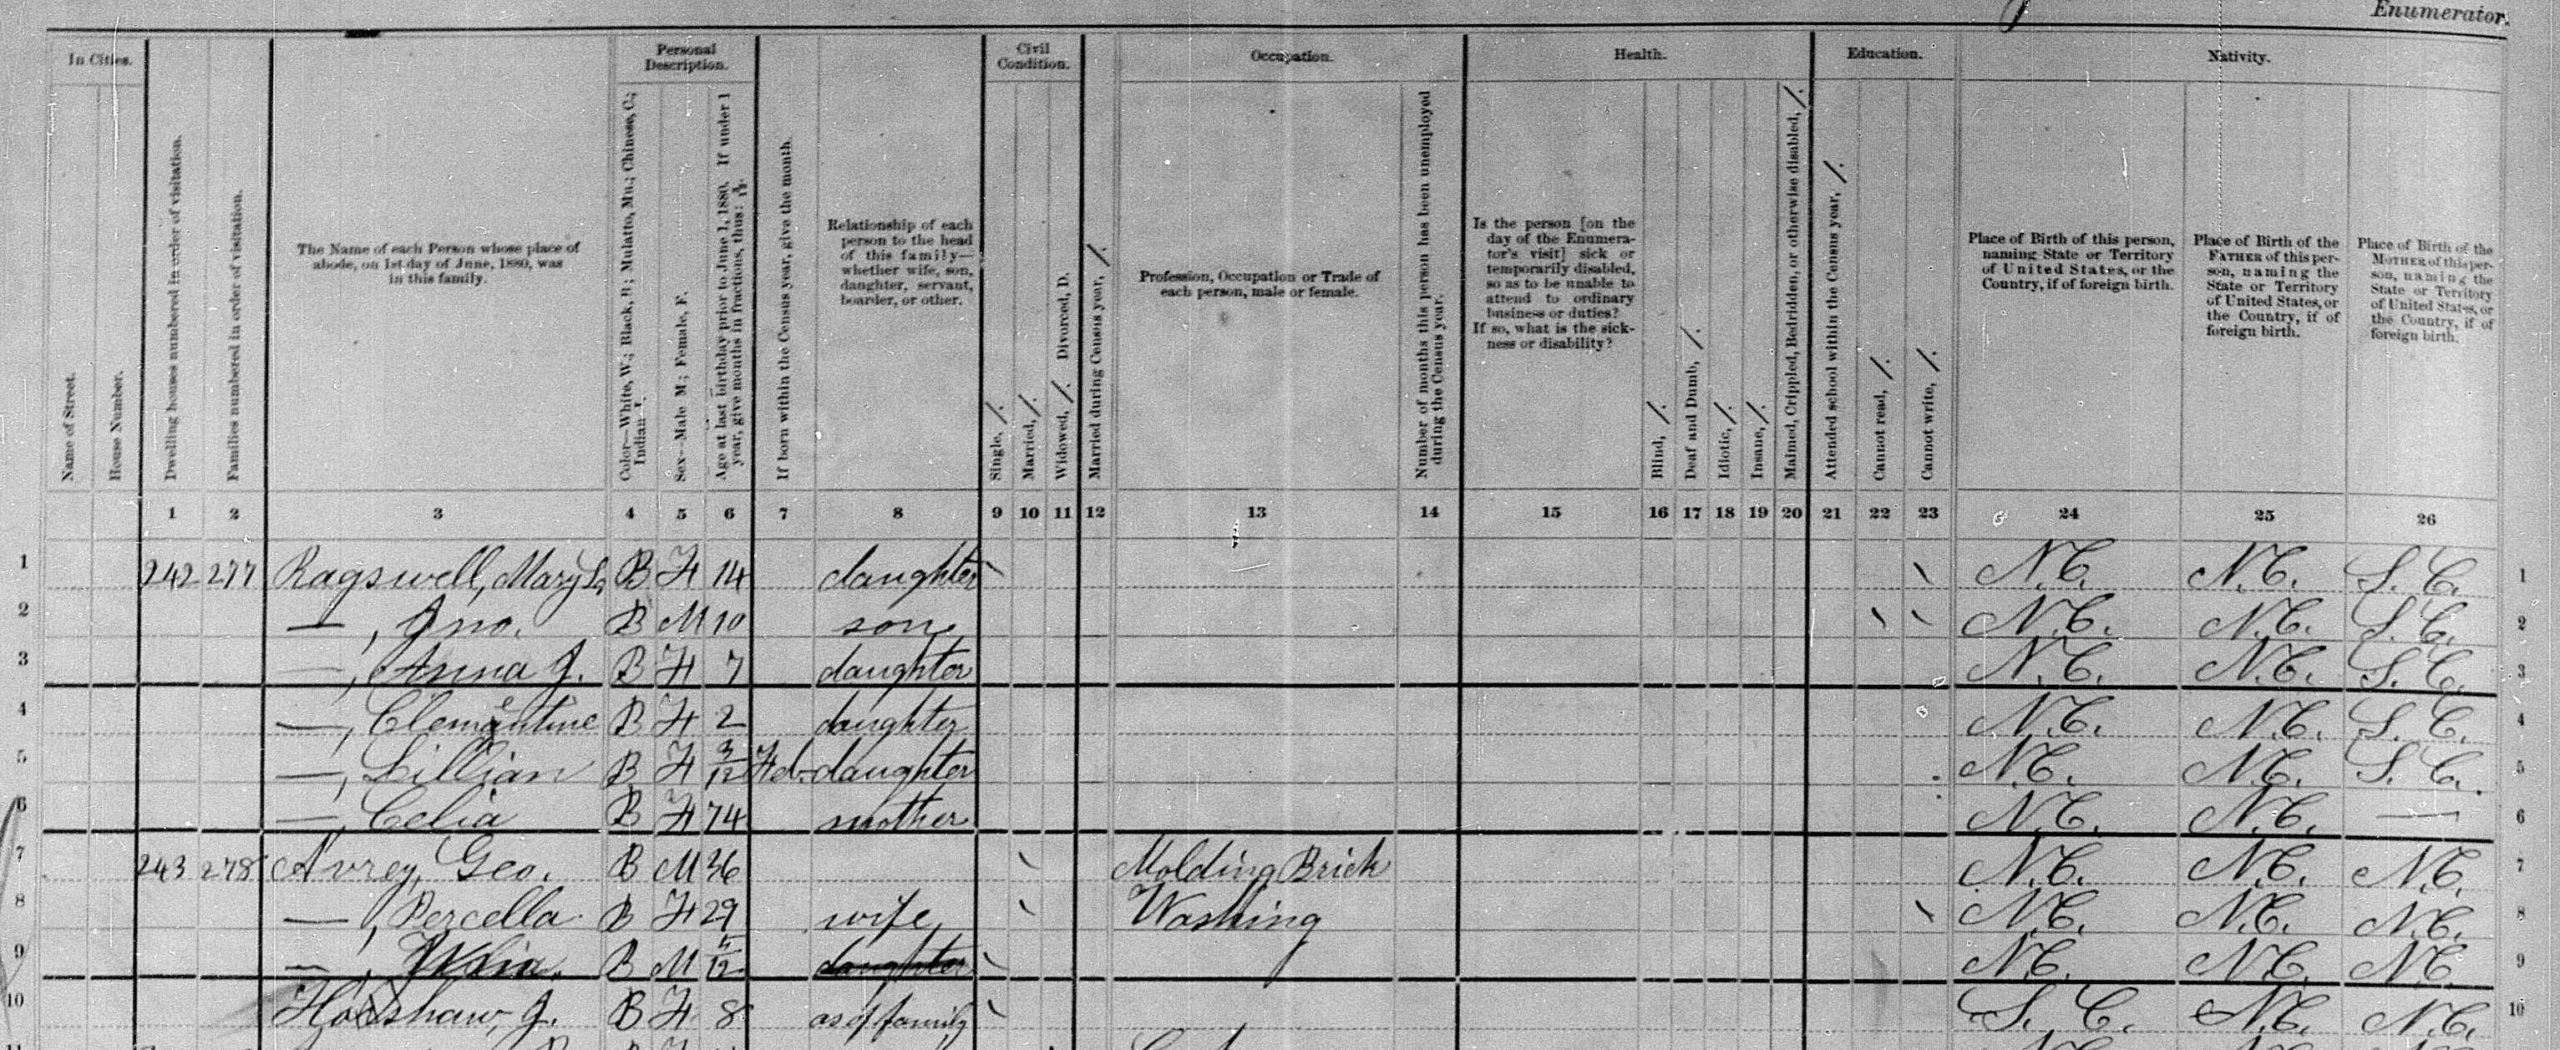 Enumerator.
In Cities.
Personal Description.
Civil Condition.
Occupation.
Health.
Education.
Nativity.
Name of Street.
House Number.
Dwelling houses numbered in order of visitation.
Families numbered in order of visitation.
The Name of each Person whose place of
abode, on 1st day of June, 1880, was
in this family.
Color—White, W.; Black, B.; Mulatto, Mu.; Chinese, C.;
Indian, I.
Sex—Male M.; Female, F.
Age at last birthday prior to June 1, 1880. If under 1
year, give months in fractions, thus: 3/12.
If born within the Census year, give the month.
Relationship of each
person to the head
of this family—
whether wife, son,
daughter, servant,
boarder, or other.
Single, /.
Married, /.
Widowed, /. Divorced, D.
Married during Census year, /.
Profession, Occupation or Trade of
each person, male or female.
Number of months this person has been unemployed
during the Census year.
Is the person [on the
day of the Enumera-
tor's visit] sick or
temporarily disabled,
so as to be unable to
attend to ordinary
business or duties?
If so, what is the sick-
ness or disability?
Blind, /.
Deaf and Dumb, /.
Idiotic, /.
Insane, /.
Maimed, Crippled, Bedridden, or otherwise disabled, /.
Attended school within the Census year, /.
Cannot read, /.
Cannot write, /.
Place of Birth of this person,
naming State or Territory
of United States, or the
Country, if of foreign birth.
Place of Birth of the
FATHER of this per-
son, naming the
State or Territory
of United States, or
the Country, if of
foreign birth.
Place of Birth of the
MOTHER of this per-
son, naming the
State or Territory
of United States, or
the Country, if of
foreign birth.
1 2 3 4 5 6 7 8 9 10 11 12 13 14 15 16 17 18 19 20 21 22 23 24 25 26
1 242 277 Ragswell, Mary L. B F 14 daughter N.C. N.C. S.C. 1
2 —, Jno. B M 10 son N.C. N.C. S.C. 2
3 —, Anna J. B F 7 daughter N.C. N.C. S.C. 3
4 —, Clementine B F 2 daughter N.C. N.C. S.C. 4
5 —, Lillian B F 3/12 Feb. daughter N.C. N.C. S.C. 5
6 —, Celia B F 74 mother N.C. N.C. — 6
7 243 278 Avrey, Geo. B M 36 Molding Brick N.C. N.C. N.C. 7
8 —, Percella B F 29 wife Washing N.C. N.C. N.C. 8
9 —, B M /12 daughter N.C. N.C. N.C. 9
10 J. B F 8 as of family S.C. N.C. N.C. 10